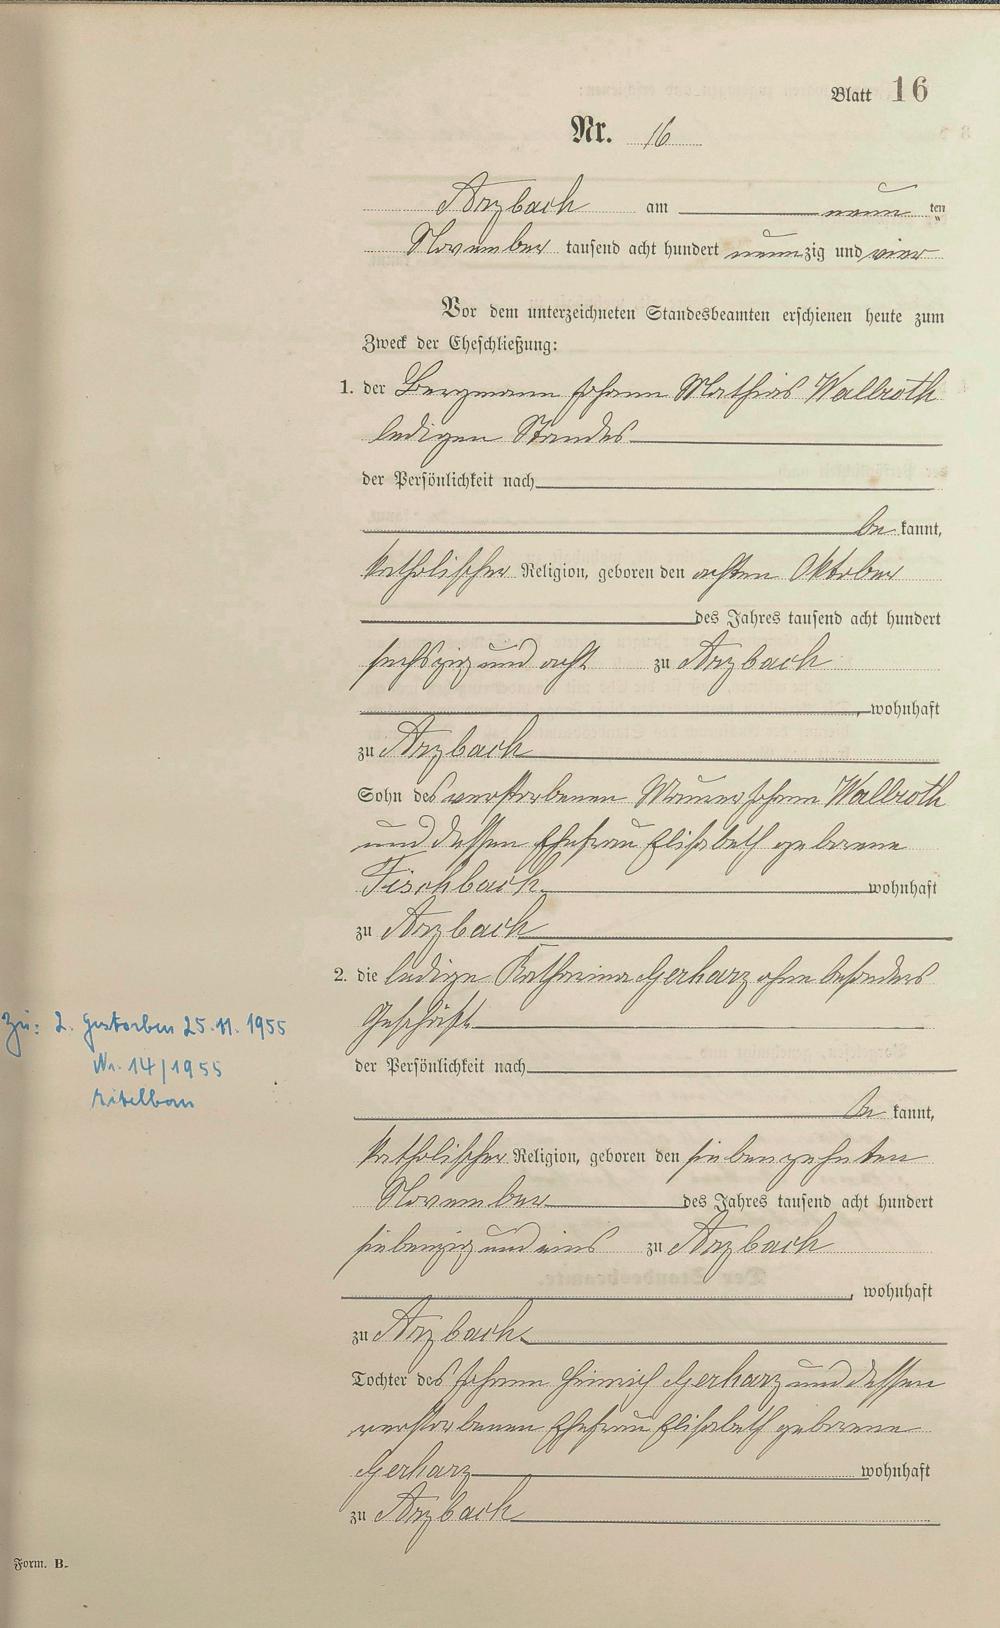 Blatt 16
Nr. 16
Arzbach am neun ten
November tausend acht hundert neunzig und vier
Vor dem unterzeichneten Standesbeamten erschienen heute zum
Zweck der Eheschließung:
1. der Bergmann Johann Mathias Wallroth
ledigen Standes
der Persönlichkeit nach
be kannt,
katholischer Religion, geboren den achten Oktober
des Jahres tausend acht hundert
sechszig und acht zu Arzbach
, wohnhaft
zu Arzbach
Sohn des verstorbenen Maurer Johann Wallroth
und dessen Ehefrau Elisabeth geborene
Fischbach wohnhaft
zu Arzbach
2. die ledige Katharina Gerharz ohne besonders
Geschäft
der Persönlichkeit nach
be kannt,
katholischer Religion, geboren den siebenzehnten
November des Jahres tausend acht hundert
siebenzig und eins zu Arzbach
, wohnhaft
zu Arzbach
Tochter des Johann Heinrich Gerharz und dessen
verstorbenen Ehefrau Elisabeth geborene
Gerharz wohnhaft
zu Arzbach
Zu: 2. Gestorben 25.11.1955
Nr. 14/1955
Form. B.